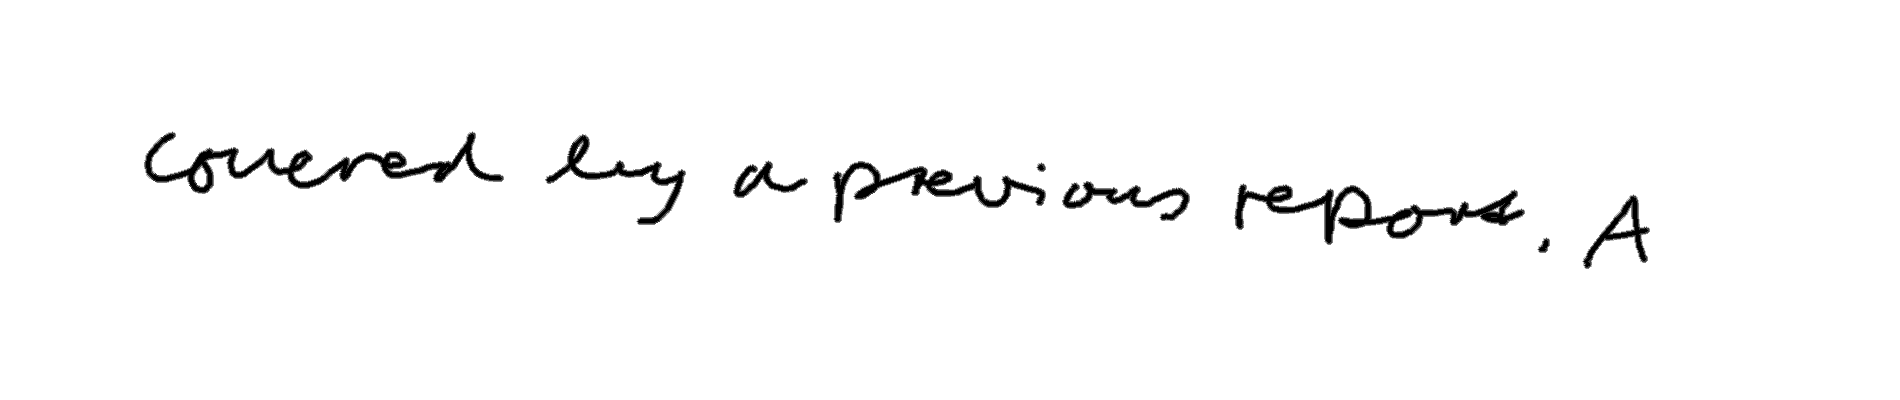 covered by a previous report. A